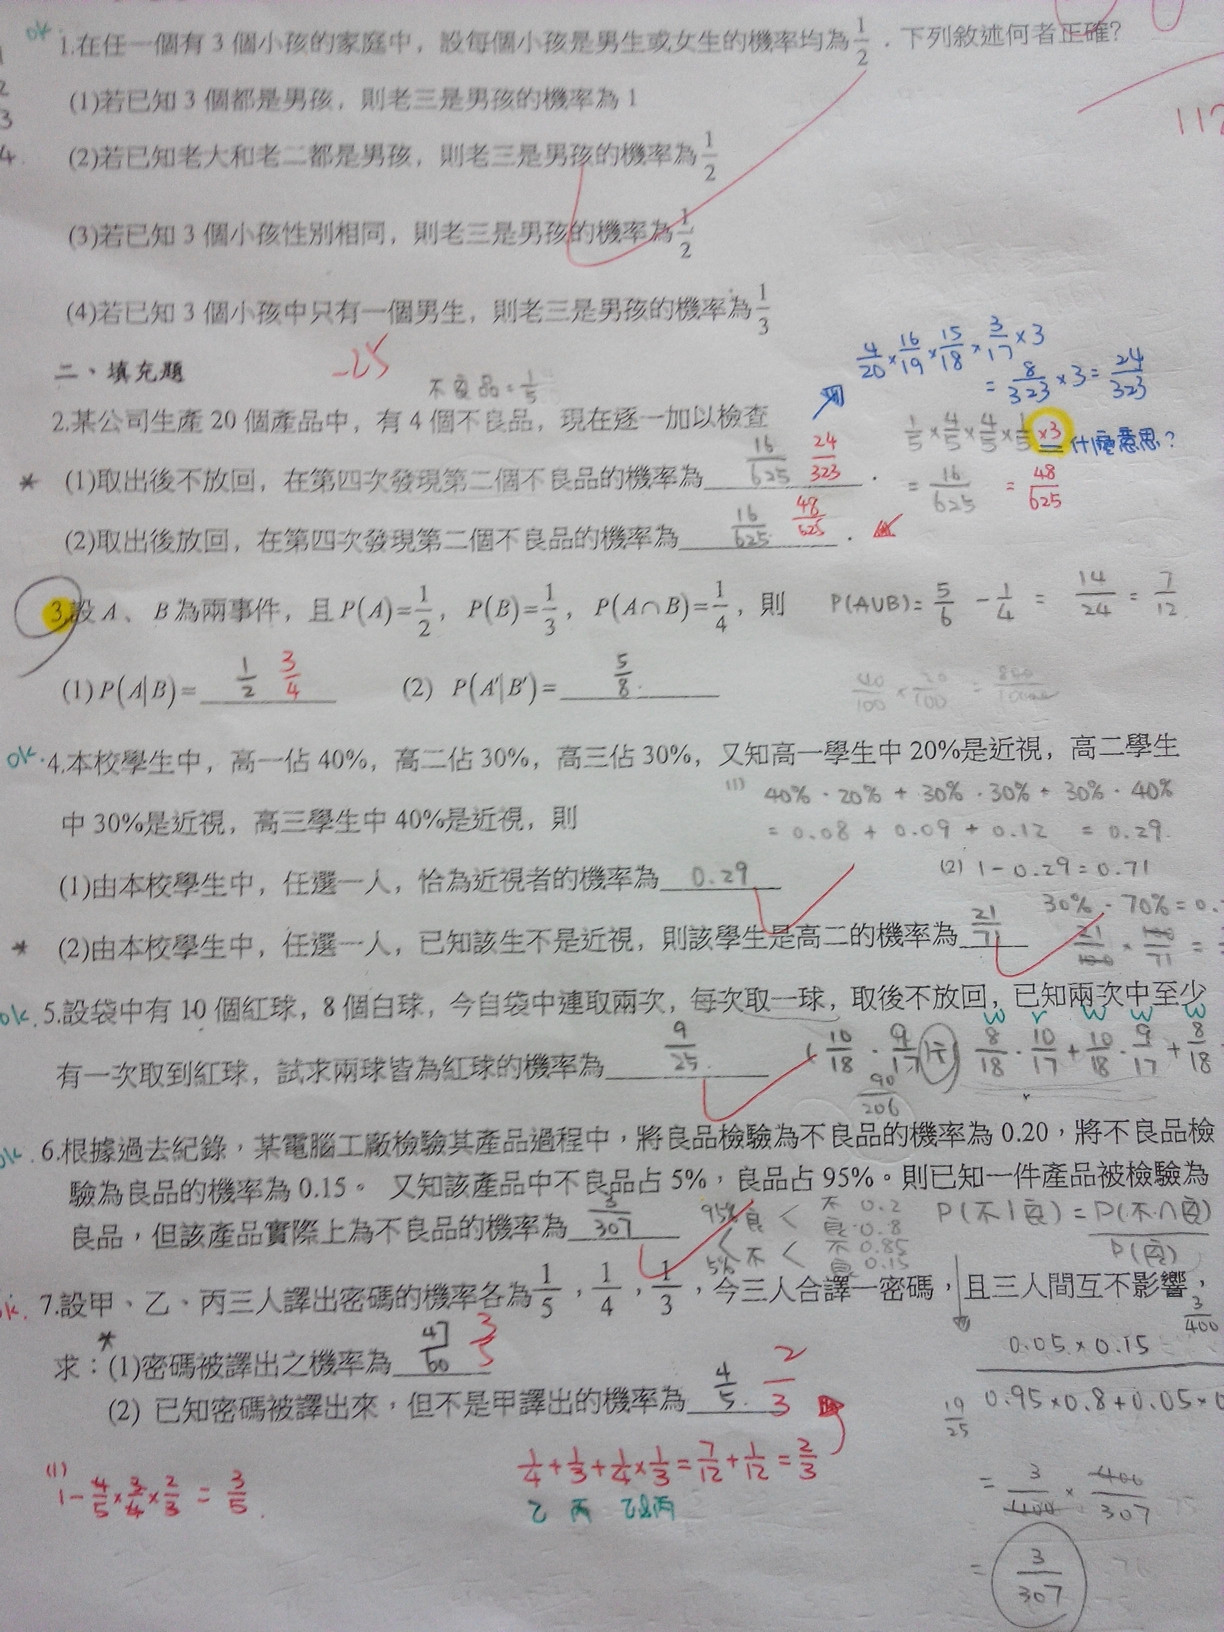 ok. 1.在任一個有 3 個小孩的家庭中，設每個小孩是男生或女生的機率均為 1/2．下列敘述何者正確?
(1)若已知 3 個都是男孩，則老三是男孩的機率為 1
112
(2)若已知老大和老二都是男孩，則老三是男孩的機率為 1/2
(3)若已知 3 個小孩性別相同，則老三是男孩的機率為 1/2
(4)若已知 3 個小孩中只有一個男生，則老三是男孩的機率為 1/3
二、填充題 -25
不良品=1/5
4/20×16/19×15/18×3/17×3
=8/323×3=24/323
2.某公司生產 20 個產品中，有 4 個不良品，現在逐一加以檢查
1/5×4/5×4/5×1/5×3 什麼意思?
* (1)取出後不放回，在第四次發現第二個不良品的機率為 16/625 24/323．
=16/625 =48/625
(2)取出後放回，在第四次發現第二個不良品的機率為 16/625 48/625．
3.設 A、B 為兩事件，且 P(A)=1/2，P(B)=1/3，P(A∩B)=1/4，則
P(AUB)=5/6-1/4=14/24=7/12
(1) P(A|B)= 1/2 3/4 (2) P(A'|B')= 5/8.
40/100×20/100=
ok. 4.本校學生中，高一佔 40%，高二佔 30%，高三佔 30%，又知高一學生中 20%是近視，高二學生
中 30%是近視，高三學生中 40%是近視，則
(1) 40%·20%+30%·30%+30%·40%
=0.08+0.09+0.12 =0.29.
(1)由本校學生中，任選一人，恰為近視者的機率為 0.29
(2) 1-0.29=0.71
30%·70%=0.
* (2)由本校學生中，任選一人，已知該生不是近視，則該學生是高二的機率為 21/71
21/100×100/71=
ok. 5.設袋中有 10 個紅球，8 個白球，今自袋中連取兩次，每次取一球，取後不放回，已知兩次中至少
有一次取到紅球，試求兩球皆為紅球的機率為 9/25.
w r w w w
10/18·9/17 8/18·10/17+10/18·9/17+8/18
90/206
ok. 6.根據過去紀錄，某電腦工廠檢驗其產品過程中，將良品檢驗為不良品的機率為 0.20，將不良品檢
驗為良品的機率為 0.15。 又知該產品中不良品占 5%，良品占 95%。則已知一件產品被檢驗為
良品，但該產品實際上為不良品的機率為 3/307
95% 良 < 不 0.2
良 0.8
5% 不 < 不 0.85
良 0.15
P(不|良)=P(不∩良)/P(良)
ok. 7.設甲、乙、丙三人譯出密碼的機率各為 1/5，1/4，1/3，今三人合譯一密碼，且三人間互不影響，
3/400
* 求：(1)密碼被譯出之機率為 47/60 3/5
0.05×0.15
0.95×0.8+0.05×0
(2) 已知密碼被譯出來，但不是甲譯出的機率為 4/5. 2/3
19/25
(1) 1-4/5×3/4×2/3=3/5.
1/4+1/3+1/4×1/3=7/12+1/12=2/3
乙 丙 乙且丙
=3/400×400/307
=3/307